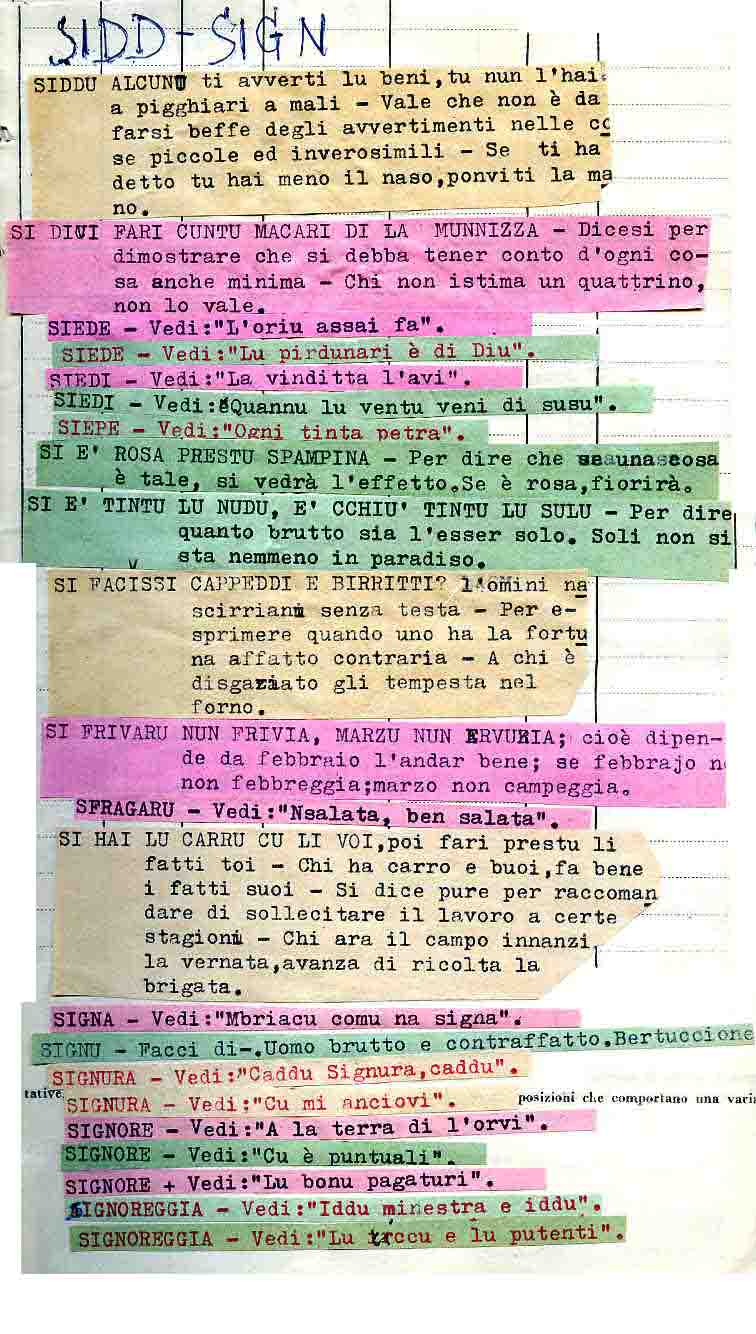 SIDD-SIGN
SIDDU ALCUNU ti avverti lu beni,tu nun l'hai
a pigghiari a mali - Vale che non è da
farsi beffe degli avvertimenti nelle co
se piccole ed inverosimili - Se ti ha
detto tu hai meno il naso,ponviti la ma
no.
SI DIVI FARI CUNTU MACARI DI LA MUNNIZZA - Dicesi per
dimostrare che si debba tener conto d'ogni co-
sa anche minima - Chi non istima un quattrino,
non lo vale.
SIEDE - Vedi:"L'oriu assai fa".
SIEDE - Vedi:"Lu pirdunari è di Diu".
SIEDI - Vedi:"La vinditta l'avi".
SIEDI - Vedi:"Quannu lu ventu veni di susu".
SIEPE - Vedi:"Ogni tinta petra".
SI E' ROSA PRESTU SPAMPINA - Per dire che se una cosa
è tale, si vedrà l'effetto.Se è rosa,fiorirà.
SI E' TINTU LU NUDU, E' CCHIU' TINTU LU SULU - Per dire
quanto brutto sia l'esser solo. Soli non si
sta nemmeno in paradiso.
SI FACISSI CAPPEDDI E BIRRITTI? l'omini na
scirriani senza testa - Per e-
sprimere quando uno ha la fortu
na affatto contraria - A chi è
disgaziato gli tempesta nel
forno.
SI FRIVARU NUN FRIVIA, MARZU NUN ERVURIA; cioè dipen-
de da febbraio l'andar bene; se febbrajo n
non febbreggia;marzo non campeggia.
SFRAGARU - Vedi:"Nsalata, ben salata".
SI HAI LU CARRU CU LI VOI,poi fari prestu li
fatti toi - Chi ha carro e buoi,fa bene
i fatti suoi - Si dice pure per raccoman
dare di sollecitare il lavoro a certe
stagioni - Chi ara il campo innanzi
la vernata,avanza di ricolta la
brigata.
SIGNA - Vedi:"Mbriacu comu na signa".
SIGNU - Facci di-.Uomo brutto e contraffatto.Bertuccione
SIGNURA - Vedi:"Caddu Signura,caddu".
tative
SIGNURA - Vedi:"Cu mi anciovi".
posizioni che comportano una vari
SIGNORE - Vedi:"A la terra di l'orvi".
SIGNORE - Vedi:"Cu è puntuali".
SIGNORE + Vedi:"Lu bonu pagaturi".
SIGNOREGGIA - Vedi:"Iddu minestra e iddu".
SIGNOREGGIA - Vedi:"Lu riccu e lu putenti".